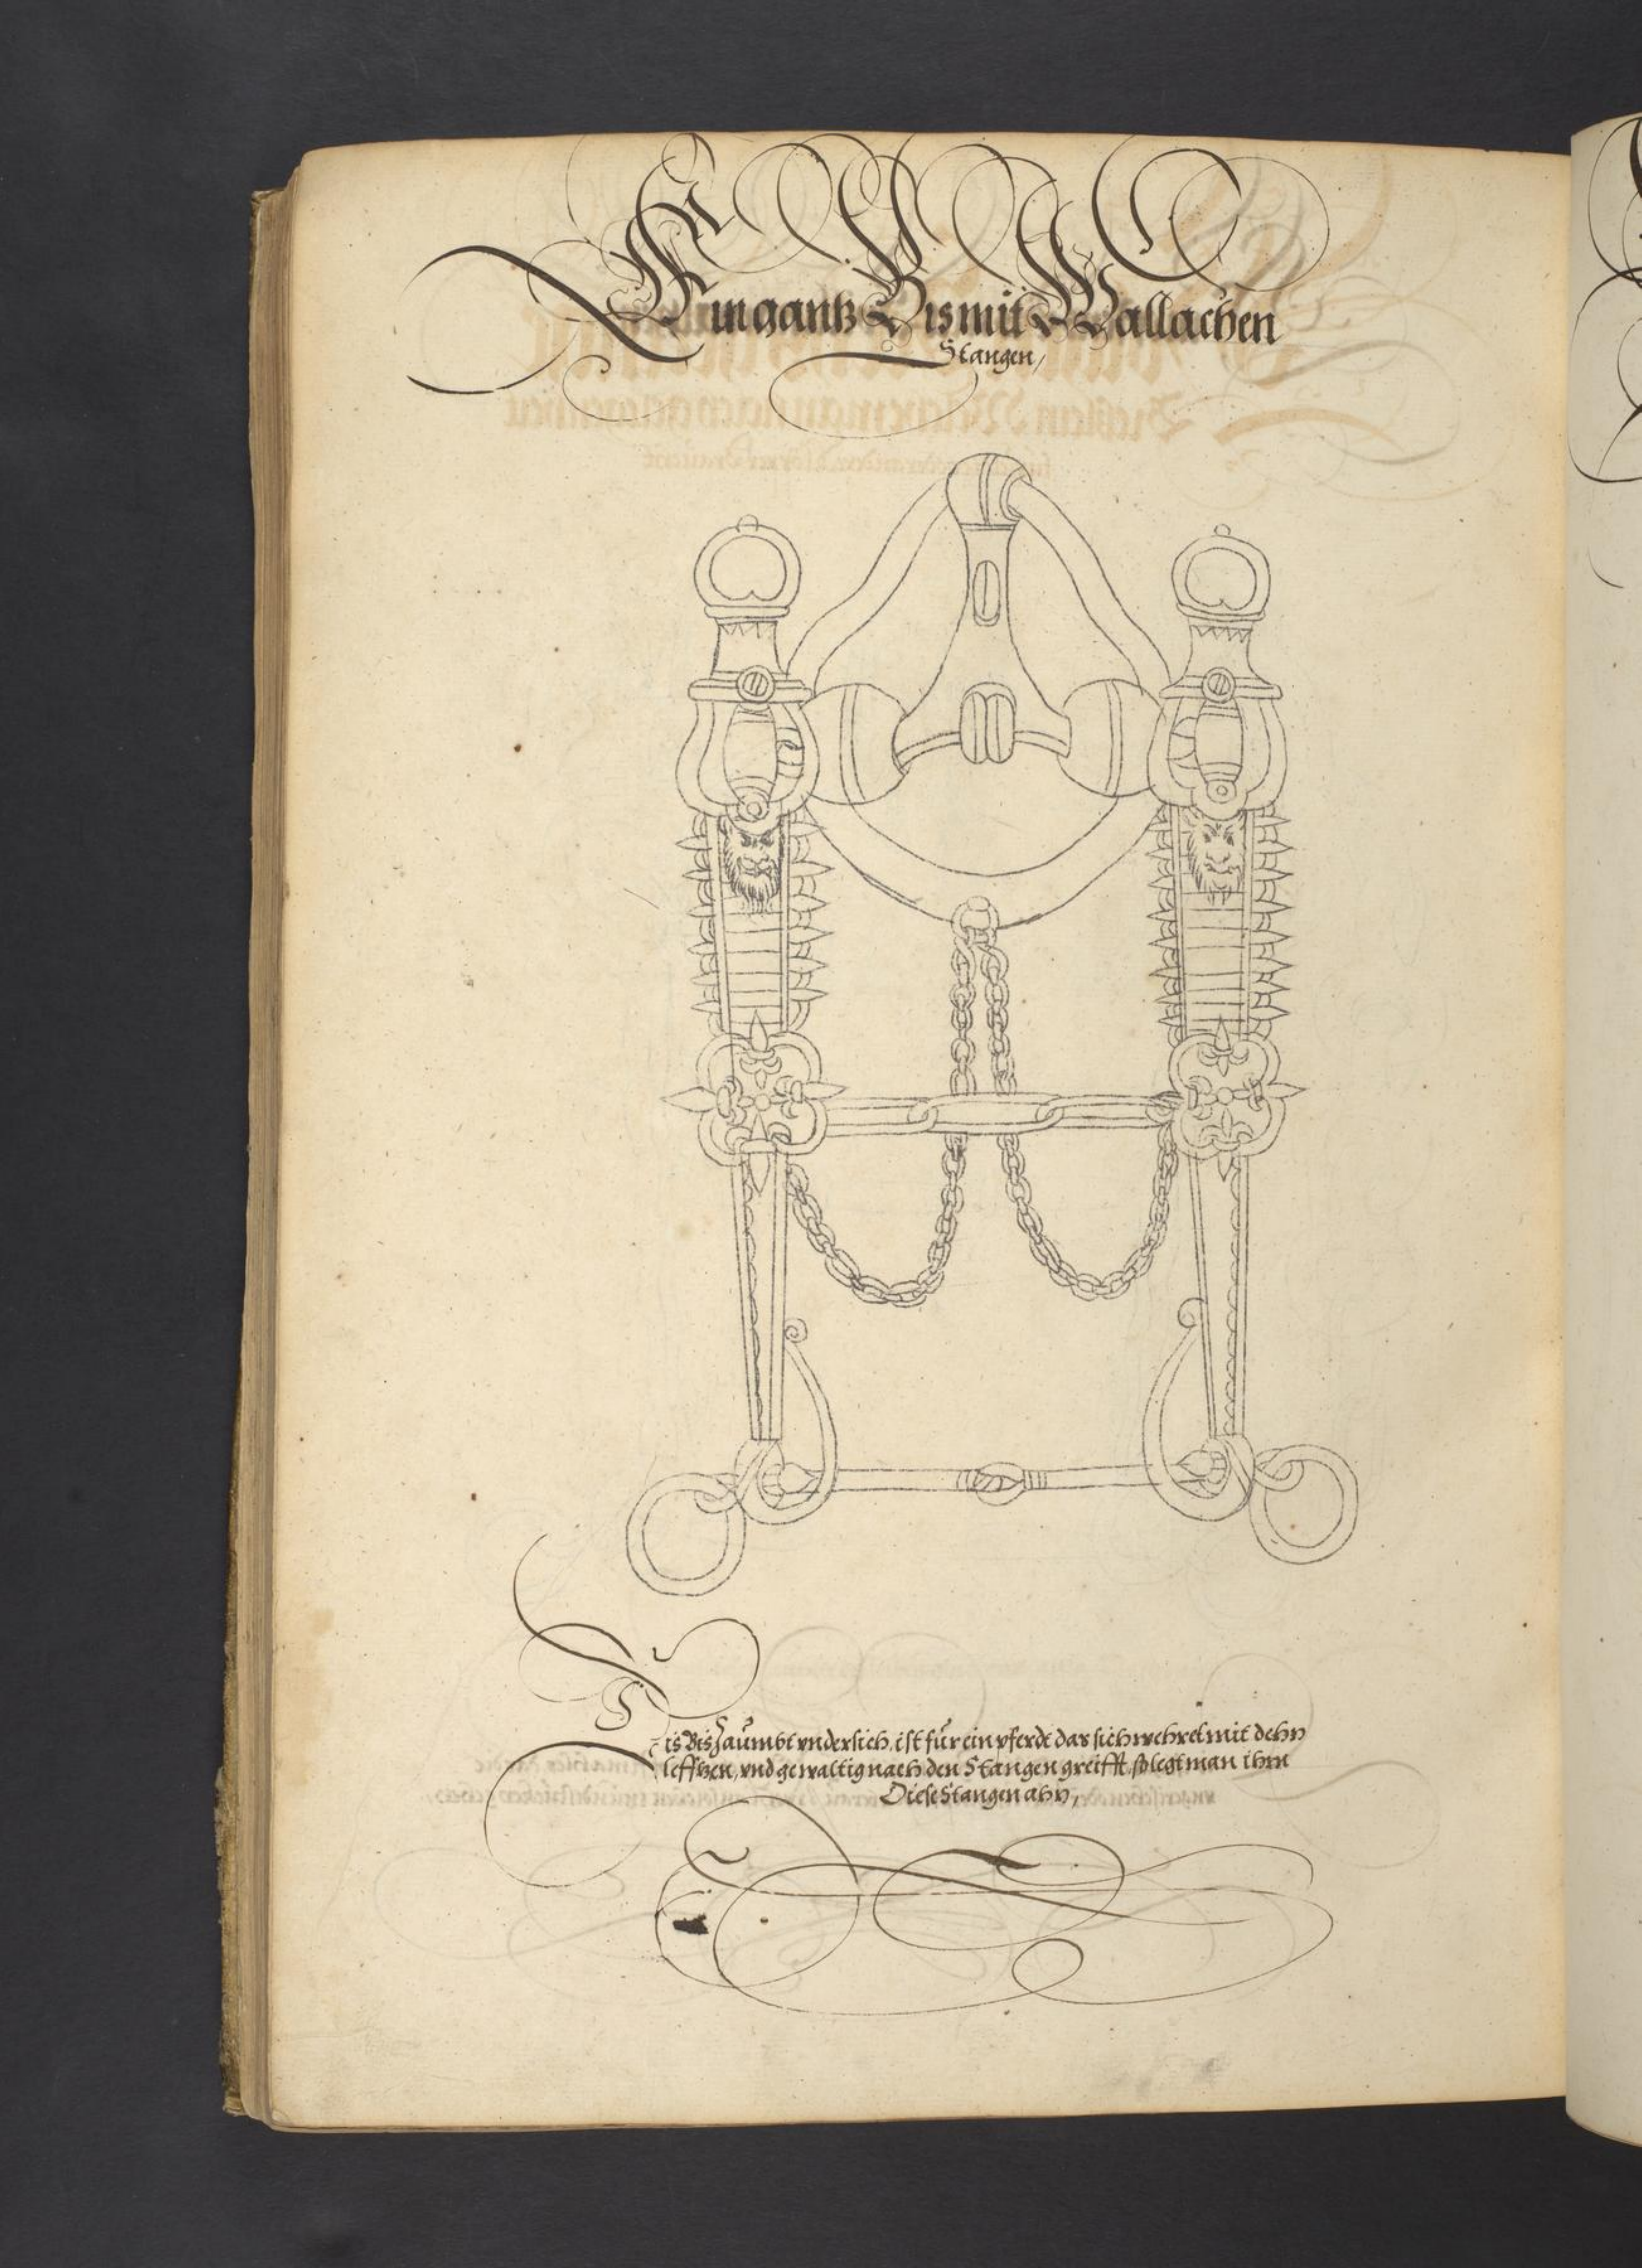 Ein gantz Bis mit Wallachen
Stangen,
Dis Bis Zaümbt vndersich, ist für ein pferdt das sich wehret mit dehn
lefftzen, vnd gewaltig nach den Stangen greifft, so legt man ihm
Diese Stangen ahn,